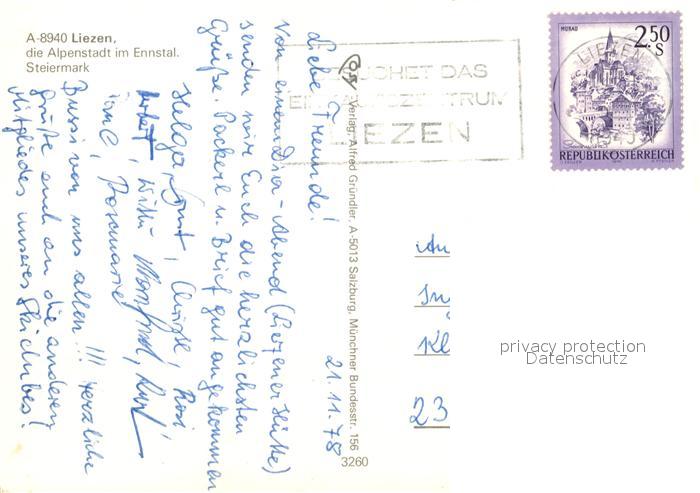 A-8940 Liezen,
die Alpenstadt im Ennstal.
Steiermark
21.11.78
Liebe Freunde!
Von einem Dia-Abend (Liezener Hütte)
senden wir Euch die herzlichsten
Grüße. Packerl u. Brief gut angekommen
Helga, Christl, Rosi
Willi Manfred,
Rosemarie
Bussi von uns allen!!! Herzliche
Grüße auch an die anderen
Mitglieder unseres Skiclubs!
Verlag: Alfred Gründler, A-5013 Salzburg, Münchner Bundesstr. 156
3260
BESUCHET DAS
EINKAUFSZENTRUM
LIEZEN
LIEZEN
MURAU
2.50
S
REPUBLIK ÖSTERREICH
An
Kl
23
privacy protection
Datenschutz